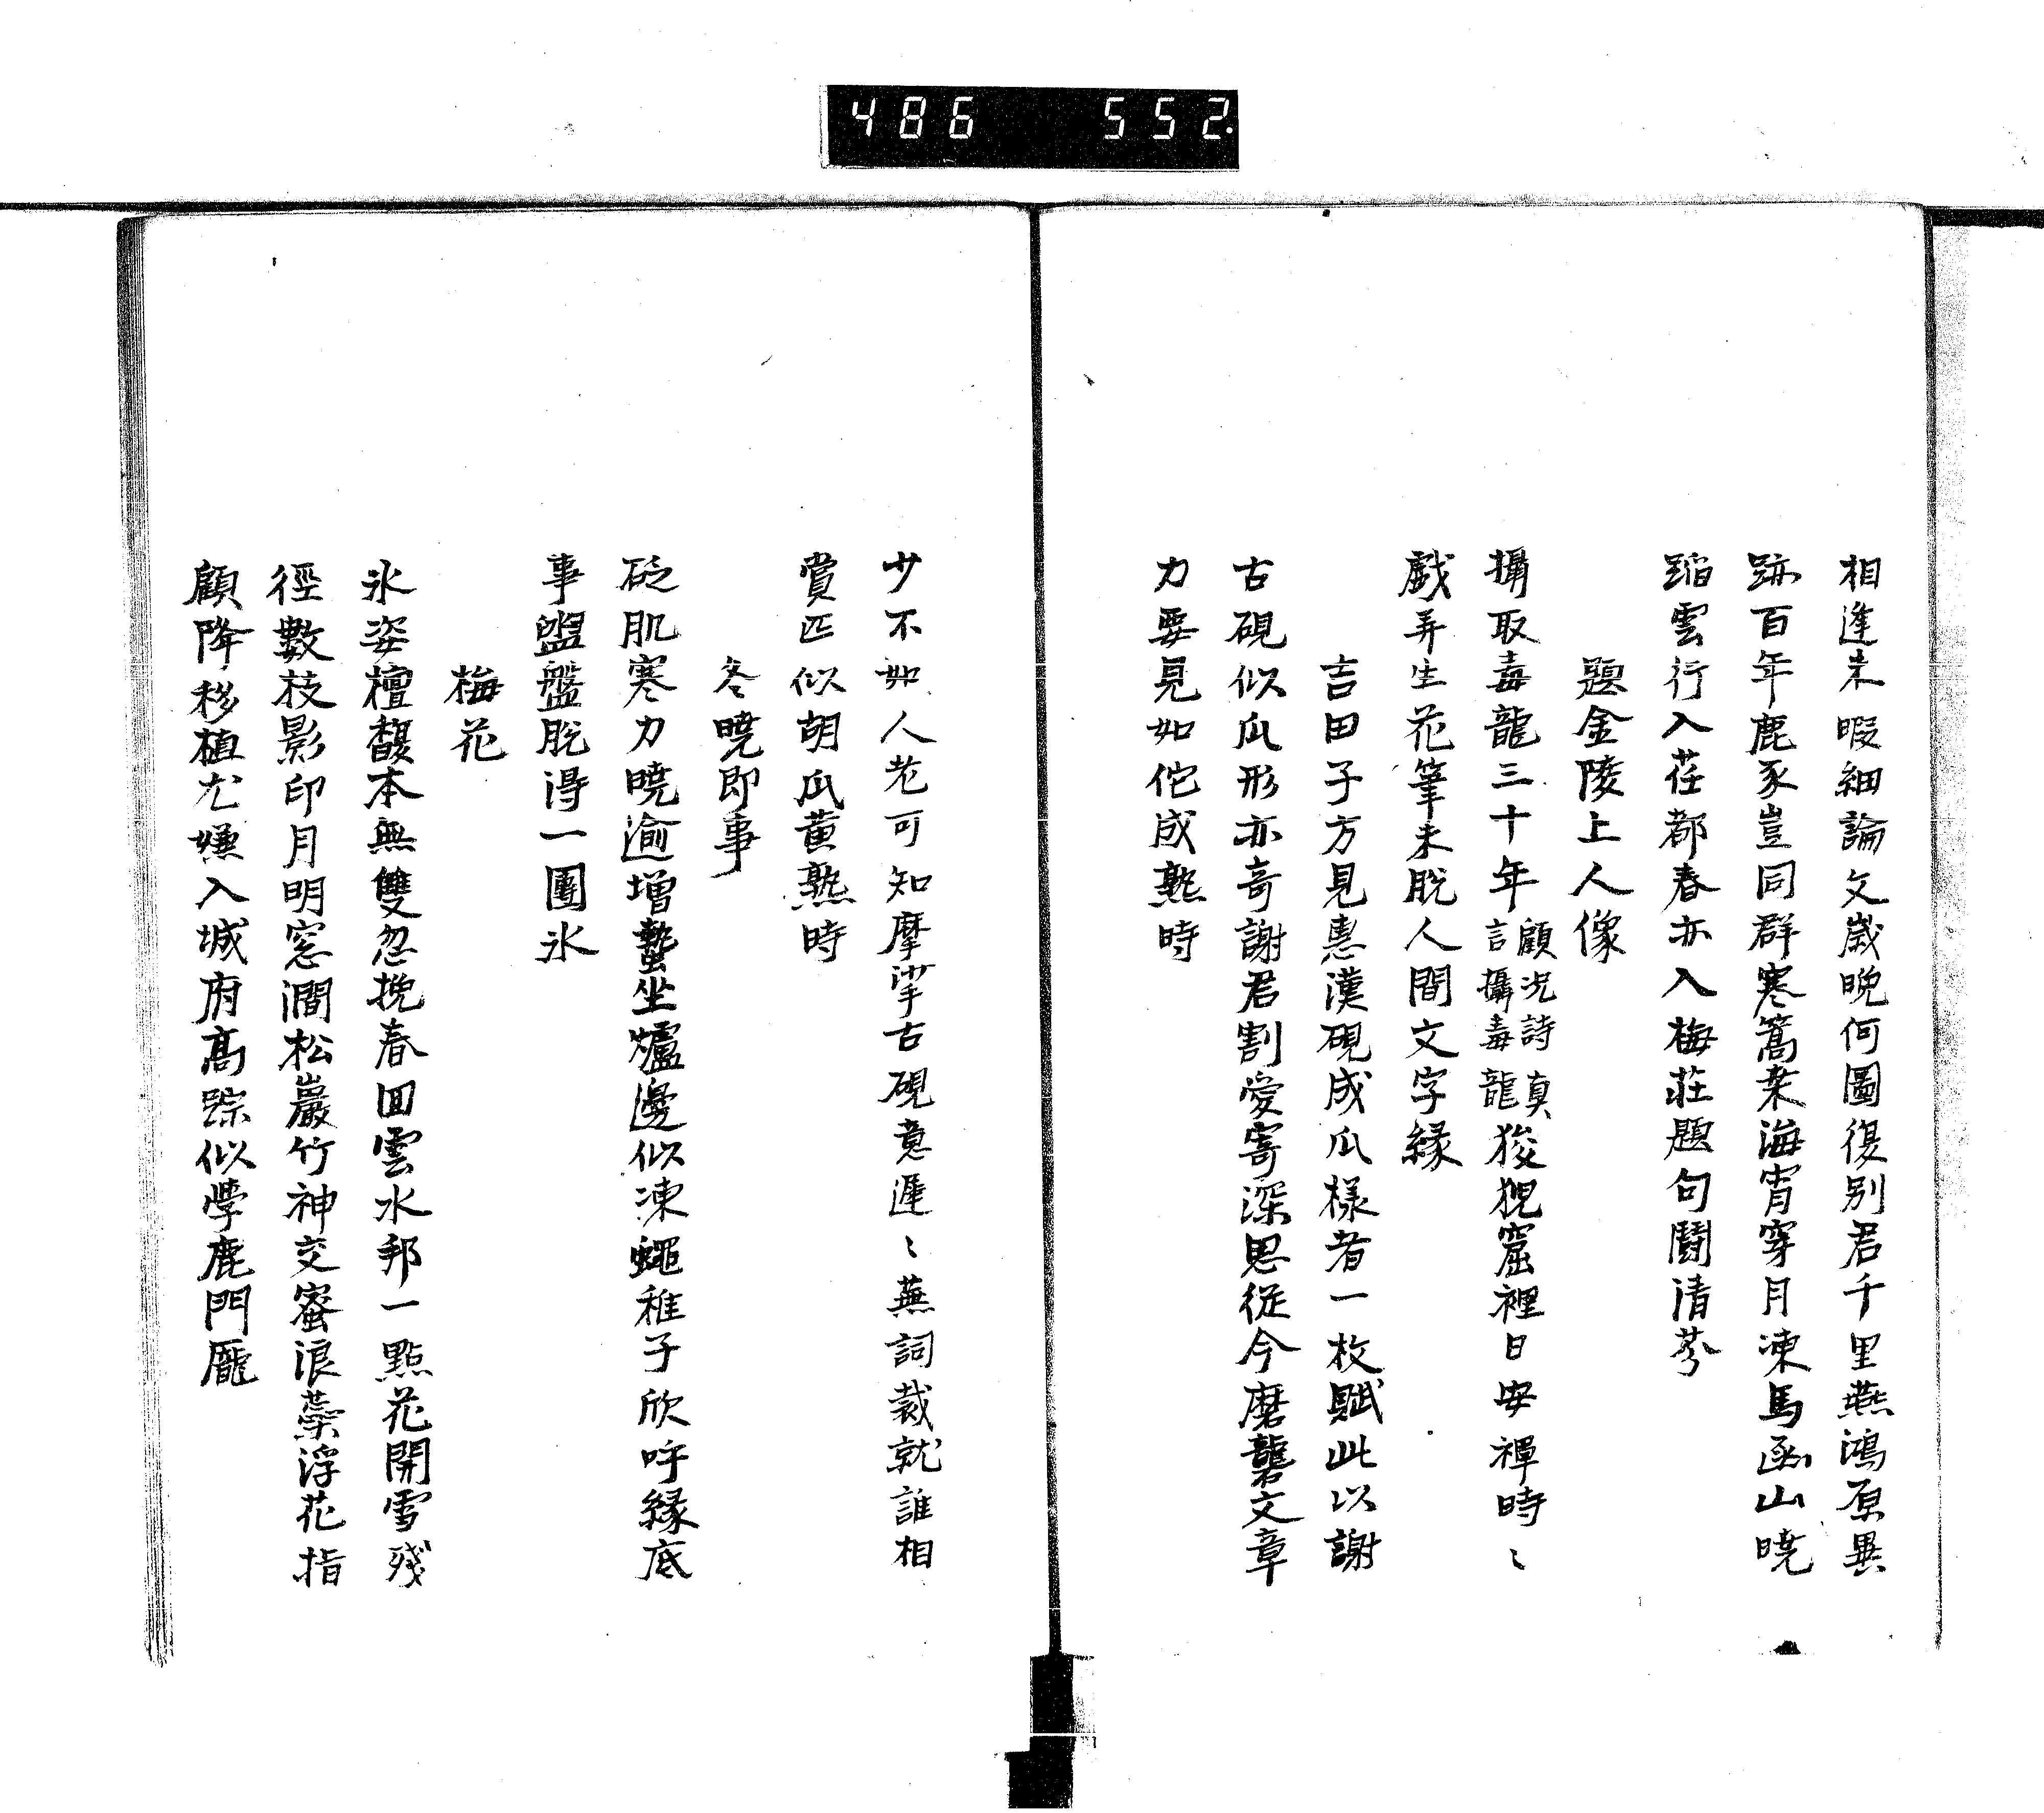 486 552
相逢未暇細論文歳晩何圖復別君千里燕鴻原異
跡百年鹿豕豈同群寒篙来海宵穿月凍馬函山暁
蹈雲行入荏都春亦入梅莊題句鬪清芬
題金陵上人像
攝取毒龍三十年顧况詩真言攝毒龍狻猊窟裡日安禪時〻
戯弄生花筆未脱人間文字縁
吉田子方見惠漢硯成瓜様者一枚賦此以謝
古硯似瓜形亦奇謝君割愛寄深思從今磨礱文章
力要見如佗成熟時
少不如人老可知摩挲古硯意遲〻蕪詞裁就誰相
賞匹似胡瓜黄熟時
冬暁即事
砭肌寒力暁逾增蟄坐爐邊似凍蠅稚子欣呼縁底
事盥盤脱得一團氷
梅花
氷姿檀馥本無雙忽挽春回雲水邦一點花開雪殘
徑數枝影印月明窓澗松巖竹神交蜜浪蘂浮花指
顧降移植尤嫌入城府高踪似學鹿門龐